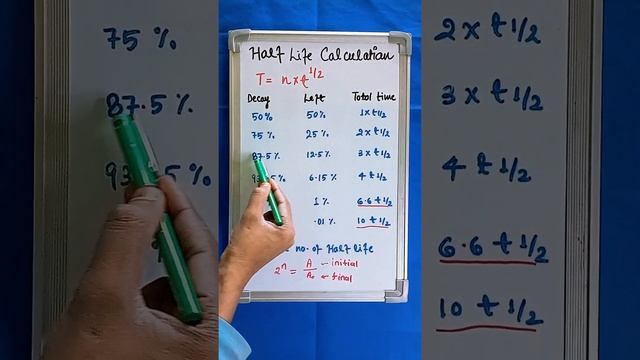 Half Life Calculation
T = n x t 1/2
Decay Left Total time
50% 50% 1 x t 1/2
75 % 25 % 2 x t 1/2
87.5 % 12.5 % 3 x t 1/2
5 % 6.15 % 4 t 1/2
1 % 6.6 t 1/2
.01 % 10 t 1/2
no. of Half life
2^n = A — initial
A₀ final
75 %
87.5 %
2 x t 1/2
3 x t 1/2
4 t 1/2
6.6 t 1/2
10 t 1/2